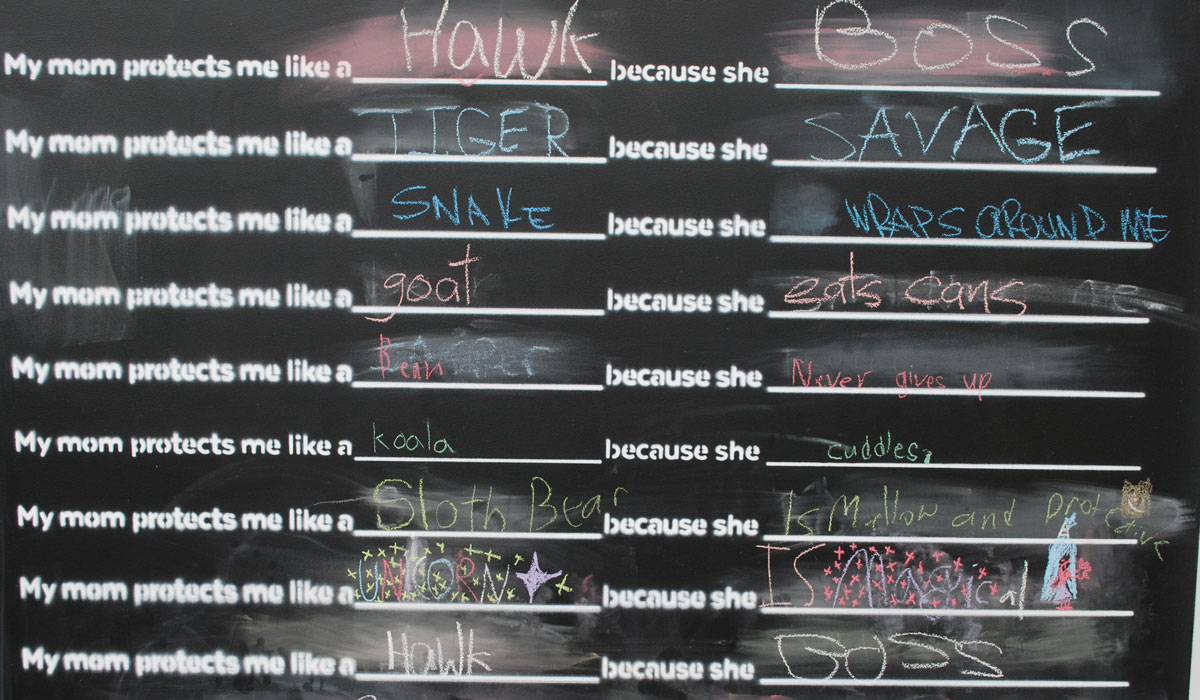 My mom protects me like a Hawk because she Boss
My mom protects me like a TIGER because she SAVAGE
My mom protects me like a SNAKE because she WRAPS AROUND ME
My mom protects me like a goat because she eats cans
My mom protects me like a Bear because she Never gives up
My mom protects me like a koala because she cuddles,
My mom protects me like a Sloth Bear because she Is Mellow and Protective
My mom protects me like a UNICORN because she IS Magical
My mom protects me like a Hawk because she BOSS